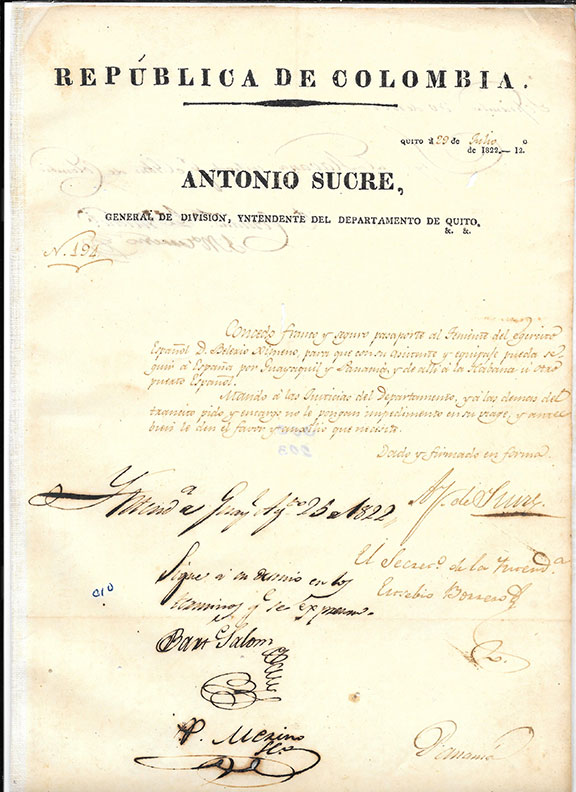 REPÚBLICA DE COLOMBIA.
QUITO á 29 de Julio
de 1822.—12.
ANTONIO SUCRE,
GENERAL DE DIVISION, YNTENDENTE DEL DEPARTAMENTO DE QUITO,
&. &.
N. 194
Concedo franco y seguro pasaporte al Teniente del egercito
Español D. para que con su asistente y equipaje pueda se
guir á España por Guayaquil y Panamá, y de allí á la Habana u otro
puerto Español.
Mando á las Justicias del Departamento, y á las demas del
transito pido y encargo no le pongan impedimento en su viage, y antes
bien le den el favor y auxilio que necesite.
Dado y firmado en forma.
A. J. de Sucre
Yntend.ª de Guay.l Ag.to 25 de 1822
El Secret.º de la Yntend.ª
Eusebio Borrero
Sigue á su destino en los
terminos q.e se expresan.
Bart.e Salom
P. Merino
Panamá